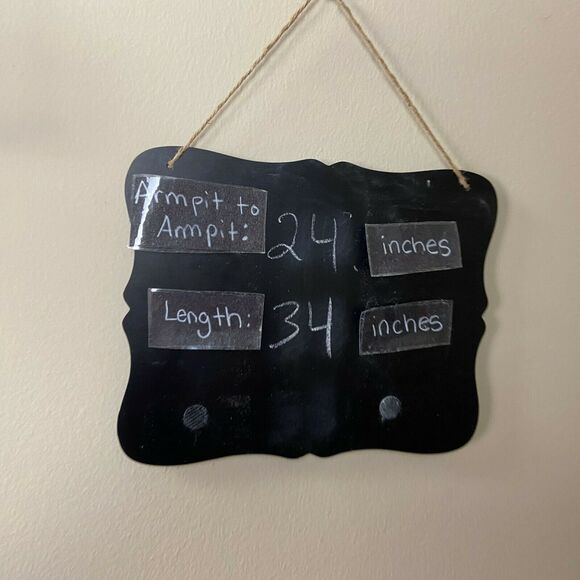 Armpit to
Armpit: 24 inches
Length: 34 inches